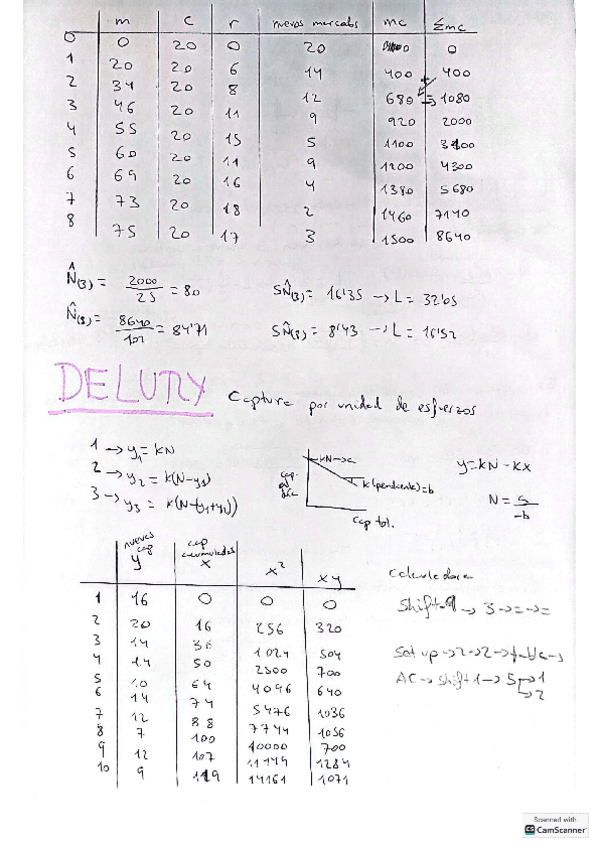 m C r nuevos marcados mc Σmc
0 0 20 0 20 0 0
1 20 20 6 14 400 400
2 34 20 8 12 680 1080
3 46 20 11 9 920 2000
4 55 20 15 5 1100 3100
5 60 20 11 9 1200 4300
6 69 20 16 4 1380 5680
7 73 20 18 2 1460 7140
8 75 20 17 3 1500 8640
N̂(3) = 2000/25 = 80 SN̂(3) = 16'35 → L = 32'05
N̂(8) = 8640/102 = 84'71 SN̂(8) = 8'43 → L = 16'52
DELURY Captura por unidad de esfuerzos
1 → y₁ = kN
2 → y₂ = k(N-y₁)
3 → y₃ = k(N-(y₁+y₂))
kN → a
k(pendiente)=b
cap tol.
y = kN - kx
nuevas cap y cap acumuladas x x² xy
1 16 0 0 0
2 20 16 256 320
3 14 36 1024 504
4 14 50 2500 700
5 10 64 4096 640
6 14 74 5476 1036
7 12 88 7744 1056
8 7 100 10000 700
9 12 107 11449 1284
10 9 119 14161 1071
calculadora
Shift → 3 → = → =
Set up → 2 → 2 → table →
AC → shift 1 → 5 → 1
→ 2
Scanned with
CS CamScanner